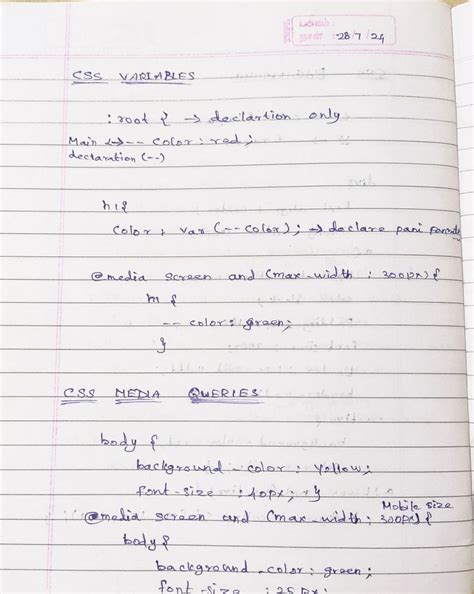 பக்கம் :
நாள் : 28/7/24
CSS VARIABLES
: root { → declartion only
Main ↔ -- color : red;
declaration (--)
h1{
color : var (--color); → declare pani
@media screen and (max-width : 300px) {
h1 {
-- color : green;
}
CSS MEDIA QUERIES
body {
background-color : Yellow;
font-size : 40px; }
Mobile size
@media screen and (max-width : 300px) {
body {
background-color : green;
font-size : 25px;